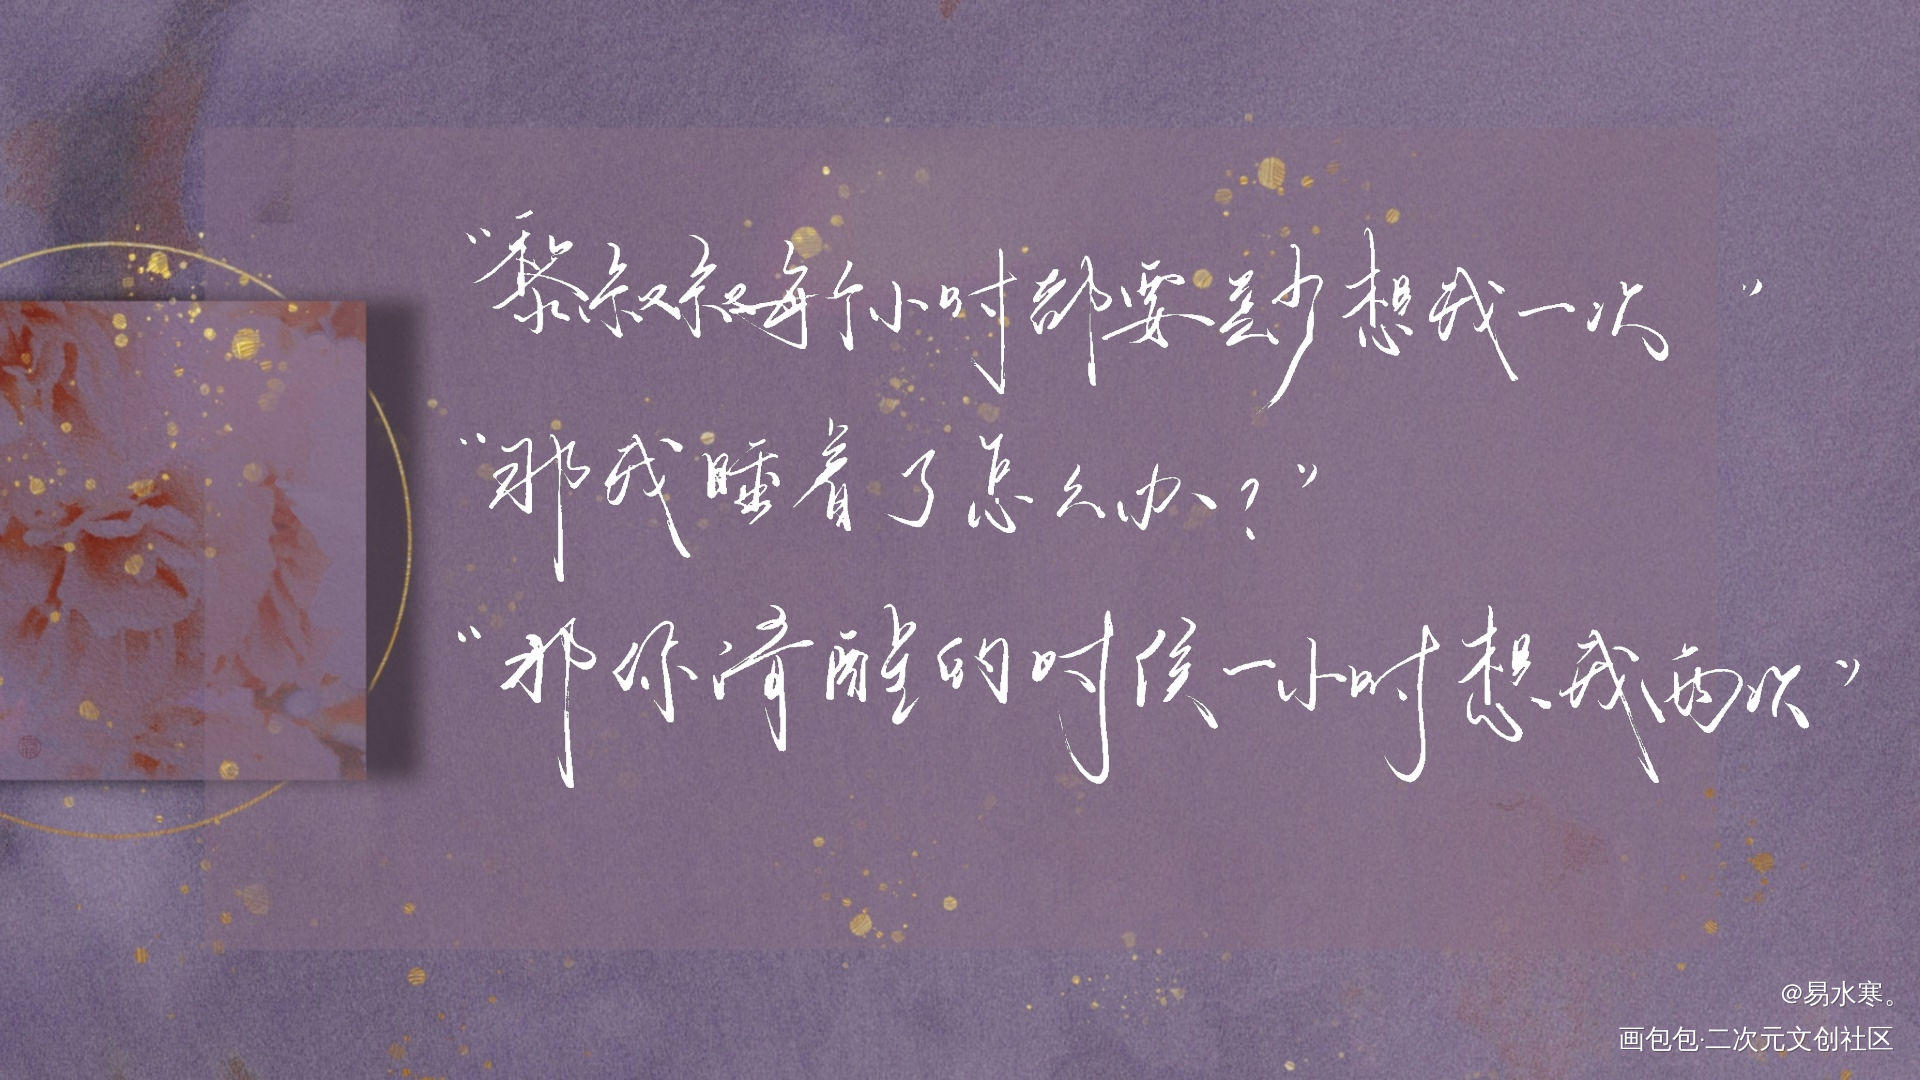 “黎叔叔每个小时都要想我一次”
“那我睡着了怎么办？”
“那你清醒的时候一小时想我两次”
@易水寒。
画包包·二次元文创社区